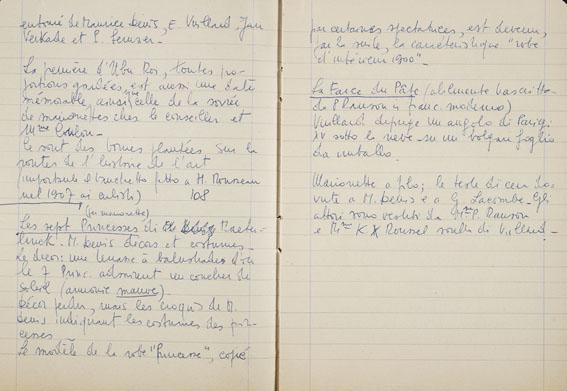 entouré de Maurice Denis, E. Vuillard, Jan
Verkade et P. Serusier -
La première d'Ubu Roi, toutes pro-
portions gardées, est aussi une date
mémorable, ainsi que celle de la soirée
de marionnettes chez le conseiller et
Mme Coulon -
Ce sont des bornes plantées sur la
route de l'histoire de l'art
(importante il banchetto fatto a H. Rousseau
nel 1907 ai artisti) 108
(in marionette)
Les sept Princesses di Maeter-
linck - M. Denis décors et costumes -
Le décor: une terrasse à balustrades d'où
le 7 Princ. admirent un coucher de
soleil (armonie mauve) -
Décor perdu, mais les croquis de M.
Denis indiquant les costumes des prin-
cesses -
Le modèle de la robe "Princesse", copié
par certaines spectatrices, est devenu,
par la suite, la caractéristique "robe
d'intérieur 1900" -
La Farce du Pâté (
de P. Ranson in franc. moderno)
Vuillard dipinge un angolo di Parigi
sotto la neve su un foglio
da imballo.
Marionette a filo; le teste di cera do-
vute a M. Denis e a G. Lacombe. Gli
attori sono vestiti da Me P. Ranson
e Me K X Roussel Vuillard -